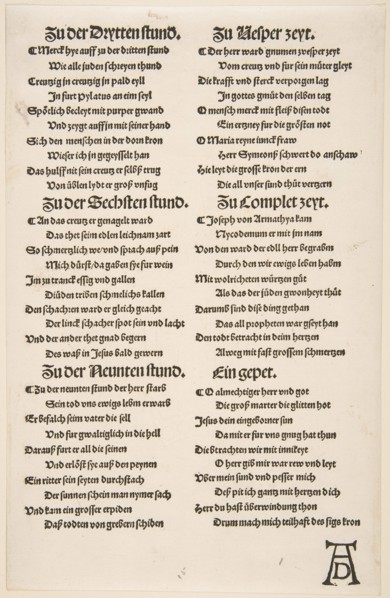 Zu der Drytten stund.
Merck hye auff zu der dritten stund
Wie alle juden schreyen thund
Creutzig in creutzig in pald eyll
In furt Pylatus an eim seyl
Spötlich becleyt mit purper gwand
Vnd zeygt auff jn mit seiner hand
Sich den menschen in der dorn kron
Wieser ich jn gegeysselt han
Das hulff nit sein creutz er selbß trug
Von üblen lydt er groß vnfug
Zu der Sechsten stund.
An das creutz er genagelt ward
Das thet seim edlen leichnam zart
So schmertzlich we/ vnd sprach auß pein
Mich dürst/ da gaben sye fur wein
Im zu tranck essig vnd gallen
Die juden triben schmelichs kallen
Den schachern ward er gleich geacht
Der linck schacher spot sein vnd lacht
Vnd der ander thet gnad begern
Des waß in Jesus bald gewern
Zu der Neunten stund.
Zu der neunten stund der herr starb
Sein tod vns ewigs leben erwarb
Er befalch seim vater die sell
Vnd fur gwaltiglich in die hell
Darauß furt er all die seinen
Vnd erlöst sye auß den peynen
Ein ritter sein seyten durchstach
Der sunnen schein man nymer sach
Vnd kam ein grosser erpiden
Daß todten von grebern schiden
Zu Vesper zeyt.
Der herr ward gnumen zvesper zeyt
Vom creutz vnd fur sein müter gleyt
Die krafft vnd sterck verporgen lag
In gottes gmüt den selben tag
O mensch merck mit fleiß disen todt
Ein ertzney fur die grösten not
O Maria reyne iunckfraw
Herr Symeonß schwert do anschaw
Hie leyt die grosse kron der ern
Die all vnser sund thüt vertzern
Zu Complet zeyt.
Joseph von Armathya kam
Nycodemum er mit jm nam
Von den ward der edll herr begrabm
Durch den wir ewigs leben habm
Mit wolricheten würtzen güt
Als das der jüden gwonheyt thüt
Darumb sind dise ding gethan
Das all propheten war gseyt han
Den todt betracht in deim hertzen
Alweg mit fast grossem schmertzen
Ein gepet.
O almechtiger herr vnd got
Die groß marter die glitten hot
Jesus dein eingeborner sun
Da mit er fur vns gnug hat thun
Die btrachten wir mit innikeyt
O herr gib mir war rew vnd leyt
Vber mein sund vnd pesser mich
Deß pit ich gantz mit hertzen dich
Herr du hast überwindung thon
Drum mach mich teilhaft des sigs kron
AD